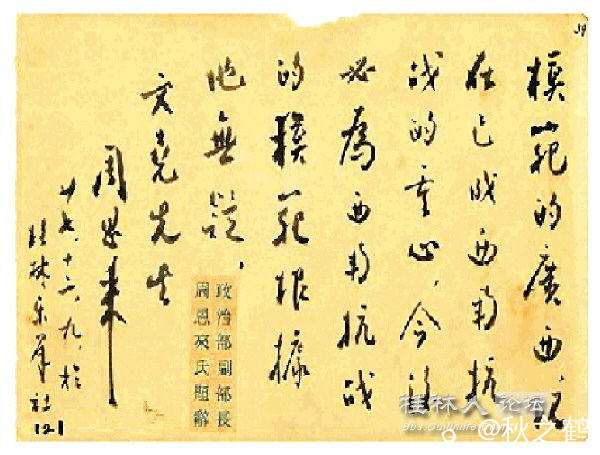 模範的廣西，現
在已成西南抗
战的重心，今後
必為西南抗战
的模範根據
地無疑，
文堯先生
周恩来
廿七、十二、九、於
桂林乐群社
121
政治部副部長
周恩來氏題辭
桂林人论坛
@秋之鹤